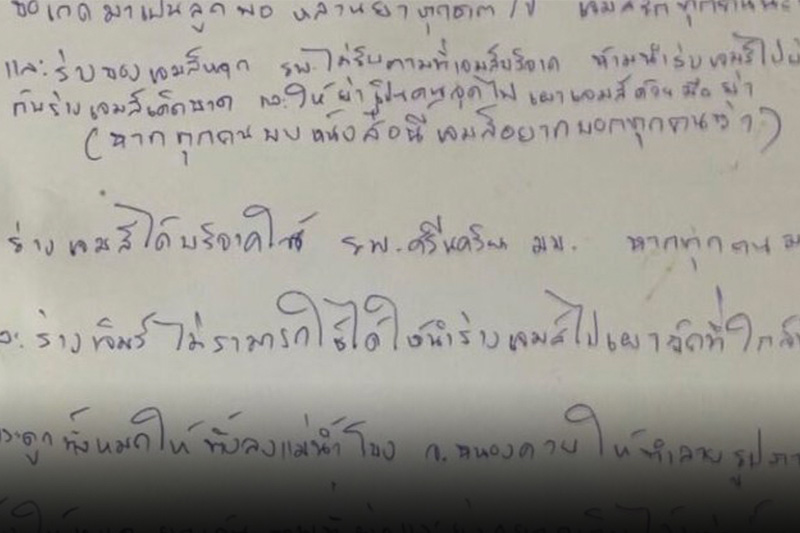 ขอเกิดมาเป็นลูกพ่อ หลานย่าทุกชาติ เจมส์รักทุกคนนะ
และร่างของเจมส์หาก รพ.ไม่รับตามที่เจมส์บริจาค ห้ามนำร่างเจมส์ไป
กับร่างเจมส์เด็ดขาด และให้ย่าเป็นคนจุดไฟเผาเจมส์ด้วยมือย่า
(หากทุกคนพบหนังสือนี้เจมส์อยากบอกทุกคนว่า)
ร่างเจมส์ได้บริจาคให้ รพ.ศรีนครินทร์ มข. หากทุกคน
และร่างเจมส์ไม่สามารถใช้ได้ให้นำร่างเจมส์ไปเผาวัดที่ใกล้
กระดูกทั้งหมดให้ทิ้งลงแม่น้ำโขง จ.หนองคาย ให้ทำลายรูป